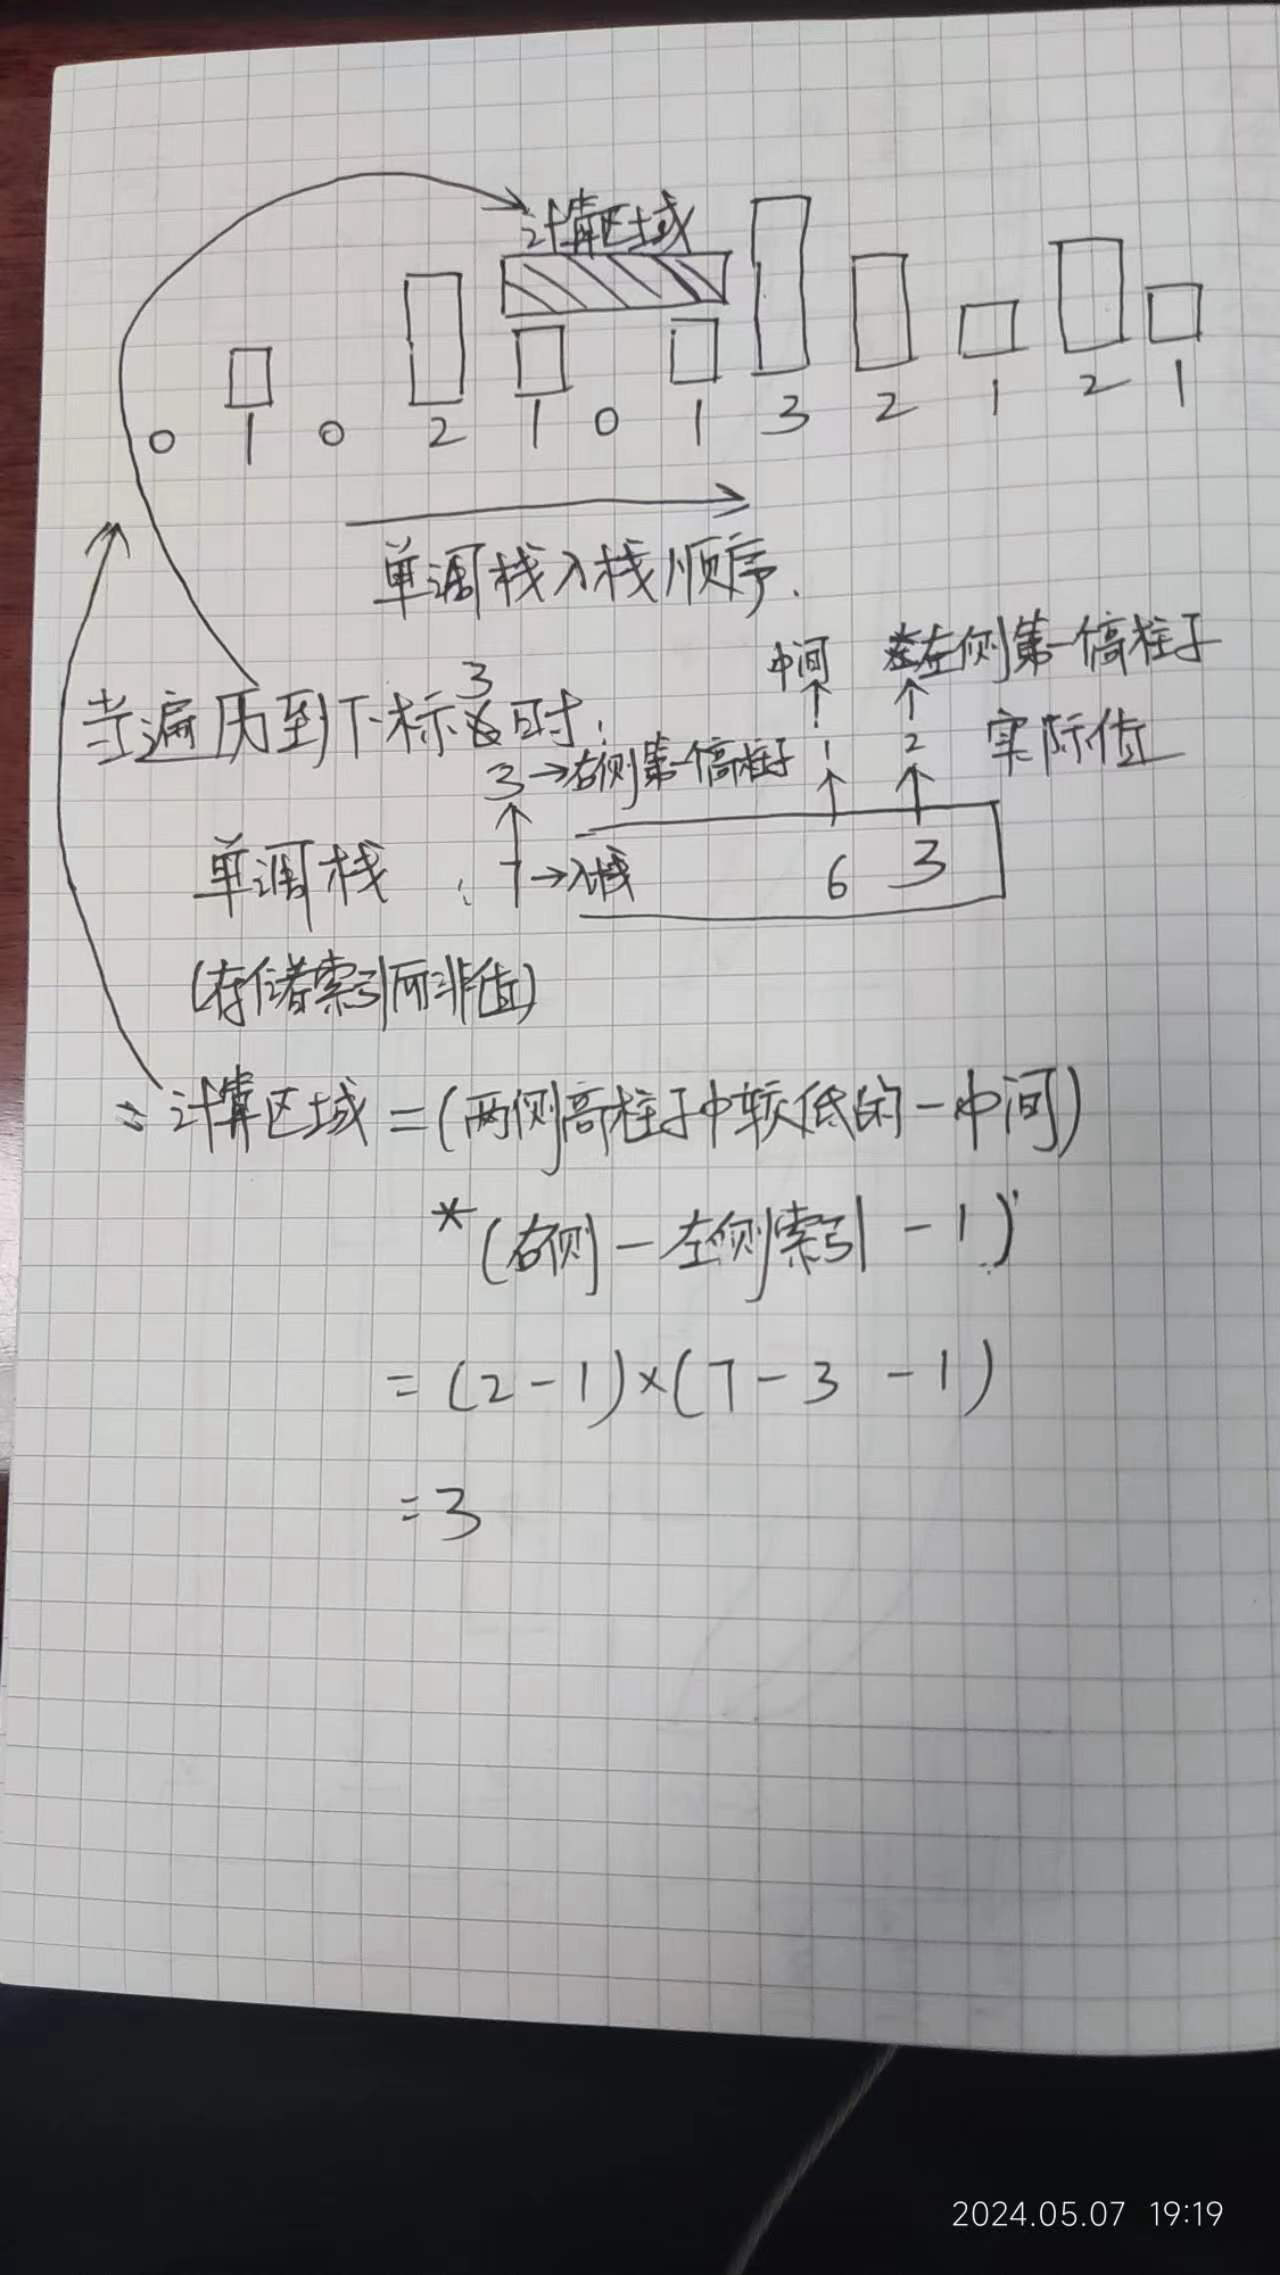 计算区域
0 1 0 2 1 0 1 3 2 1 2 1
单调栈入栈顺序.
中间 左侧第一高柱子
当遍历到下标3时:
1 2 实际值
3→右侧第一个高柱子
单调栈: 7→入栈 6 3
(存储索引而非值)
计算区域=(两侧高柱子中较低的-中间)
*(右侧-左侧索引-1)
=(2-1)×(7-3-1)
=3
2024.05.07 19:19